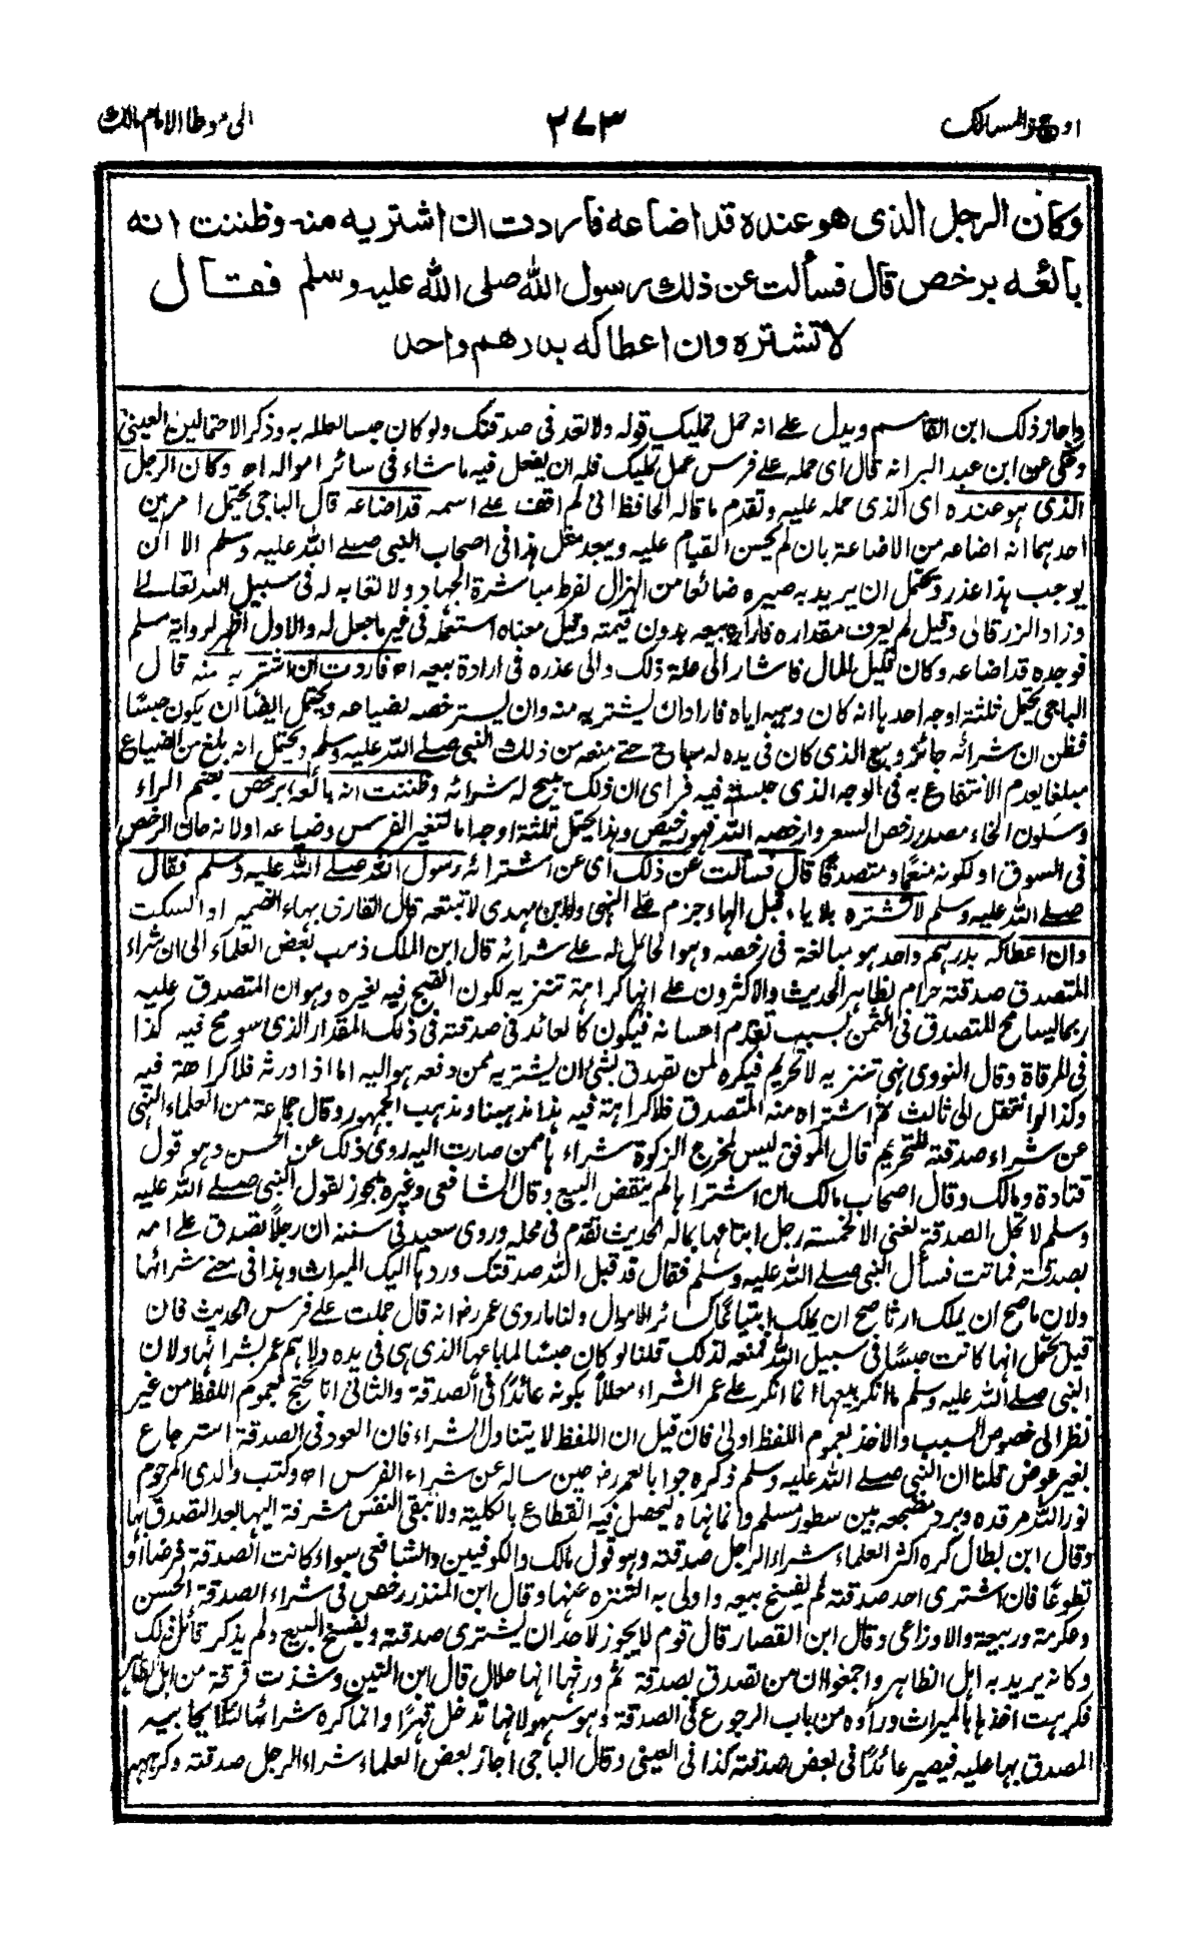 اوجز المسالك ٢٧٣ الى موطا الامام مالك
وكان الرجل الذى هو عنده قد اضاعه فاردت ان اشتريه منه وظننت انه
بائعه برخص قال فسألت عن ذلك رسول الله صلى الله عليه وسلم فقال
لا تشتره وان اعطاكه بدرهم واحد
واجاز ذلك ابن القاسم ويدل على انه حمل تمليك قوله ولا تعد فى صدقتك ولو كان حبسا لعلله به وذكر الاحتمالين العينى
وحكى عن ابن عبد البر انه قال اى حمله على فرس حمل تمليك فله ان يفعل فيه ما شاء فى سائر امواله اه وكان الرجل
الذى هو عنده اى الذى حمله عليه وتقدم ما قاله الحافظ انى لم اقف على اسمه قد اضاعه قال الباجى يحتمل امرين
احدهما انه اضاعه من الاضاعة بان لم يحسن القيام عليه ويبعد مثل هذا فى اصحاب النبى صلى الله عليه وسلم الا ان
يوجب هذا عذر ويحتمل ان يريد به صيره ضائعا من الهزال لفرط مباشرة الجهاد ولا تعابه له فى سبيل الله تعالى
وزاد الزرقانى وقيل لم يعرف مقداره فاراد بيعه بدون قيمته وقيل معناه استعمله فى غير ما جعل له والاول اظهر لرواية مسلم
فوجده قد اضاعه وكان قليل المال فاشار الى علة ذلك والى عذره فى ارادة بيعه اه فاردت ان اشتريه منه قال
الباجى يحتمل ثلثة اوجه احدها انه كان وهبه اياه فاراد ان يشتريه منه وان يسترخصه لضياعه ويحتمل ايضا ان يكون حبسًا
فظن ان شرائه جائز وبيع الذى كان فى يده له مباح حتى منعه من ذلك النبى صلى الله عليه وسلم ويحتمل انه بلغ من الضياع
مبلغا يعدم الانتفاع به فى الوجه الذى حبسه فيه فرأى ان ذلك يبيح له شرائه وظننت انه بائعه برخص بضم الراء
وسكون الخاء مصدر رخص السعر وارخصه الله فهو رخيص وهذا يحتمل ثلثة اوجه اما لتغير الفرس وضياعه اولانه حان الرخص
فى السوق او لكونه منعمًا ومتصدقًا قال فسألت عن ذلك اى عن اشترائه رسول الله صلى الله عليه وسلم فقال
صلى الله عليه وسلم لا تشتره بلا ياء قبل الهاء وجزم على النهى ولابن مهدى لا تبتعه قال القارى بهاء الضمير او السكت
وان اعطاكه بدرهم واحد هو مبالغة فى رخصه وهو الحامل له على شرائه قال ابن الملك ذهب بعض العلماء الى ان شراء
المتصدق صدقته حرام لظاهر الحديث والاكثرون على انها كراهة تنزيه لكون القبح فيه لغيره وهو ان المتصدق عليه
ربما يسامح للمتصدق فى الثمن بسبب تقدم احسانه فيكون كالعائد فى صدقته فى ذلك المقدار الذى سومح فيه كذا
فى المرقاة وقال النووى نهى تنزيه لا تحريم فيكره لمن تصدق بشئ ان يشتريه ممن دفعه هو اليه اما اذا ورثه فلا كراهة فيه
وكذا لو انتقل الى ثالث ثم اشتراه منه المتصدق فلا كراهة فيه هذا مذهبنا ومذهب الجمهور وقال جماعة من العلماء النهى
عن شراء صدقته للتحريم قال الموفق ليس لمخرج الزكوة شراءها ممن صارت اليه روى ذلك عن الحسن وهو قول
قتادة ومالك وقال اصحاب مالك ان اشتراها لم ينقض البيع وقال الشافعى وغيره يجوز لقول النبى صلى الله عليه
وسلم لا تحل الصدقة لغنى الا لخمسة رجل ابتاعها بماله الحديث تقدم فى محله وروى سعيد فى سننه ان رجلاً تصدق على امه
بصدقة فماتت فسأل النبى صلى الله عليه وسلم فقال قد قبل الله صدقتك وردها اليك الميراث وهذا فى معنى شرائها
ولان ما صح ان يملك ارثا صح ان يملك ابتياعًا كسائر الاموال ولنا ما روى عمر رض انه قال حملت على فرس الحديث فان
قيل يحتمل انها كانت حبسًا فى سبيل الله فمنعه لذلك قلنا لو كان حبسًا لما باعها الذى هى فى يده ولا هم عمر بشرائها ولان
النبى صلى الله عليه وسلم ما انكر بيعها انما انكر على عمر الشراء معللاً بكونه عائدًا فى الصدقة والثانى انا نحتج بعموم اللفظ من غير
نظر الى خصوص السبب والاخذ بعموم اللفظ اولى فان قيل ان اللفظ لا يتناول الشراء فان العود فى الصدقة استرجاع
بغير عوض قلنا ان النبى صلى الله عليه وسلم ذكره جوابا لعمر رض حين سأله عن شراء الفرس اه وكتب والدى المرحوم
نور الله مرقده وبرد مضجعه بين سطور مسلم وانما نهاه ليحصل فيه انقطاع بالكلية ولا تبقى النفس مشرفة اليها بعد التصدق بها
وقال ابن بطال كره اكثر العلماء شراء الرجل صدقته وهو قول مالك والكوفيين والشافعى سواء كانت الصدقة فرضا او
تطوعًا فان اشترى احد صدقته لم يفسخ بيعه واولى به التنزه عنها وقال ابن المنذر رخص فى شراء الصدقة الحسن
وعكرمة وربيعة والاوزاعى وقال ابن القصار قال قوم لا يجوز لاحد ان يشترى صدقته ويفسخ البيع ولم يذكر قائل ذلك
وكانه يريد به اهل الظاهر واجمعوا ان من تصدق بصدقة ثم ورثها انها حلال قال ابن التين وشذت فرقة من اهل الظاهر
فكرهت اخذها بالميراث ورأوه من باب الرجوع فى الصدقة وهو سهو لانها تدخل قهرًا وانما كره شرائها لئلا يحابيه
المصدق بها عليه فيصير عائدًا فى بعض صدقته كذا فى العينى وقال الباجى اجاز بعض العلماء شراء الرجل صدقته وكرهه